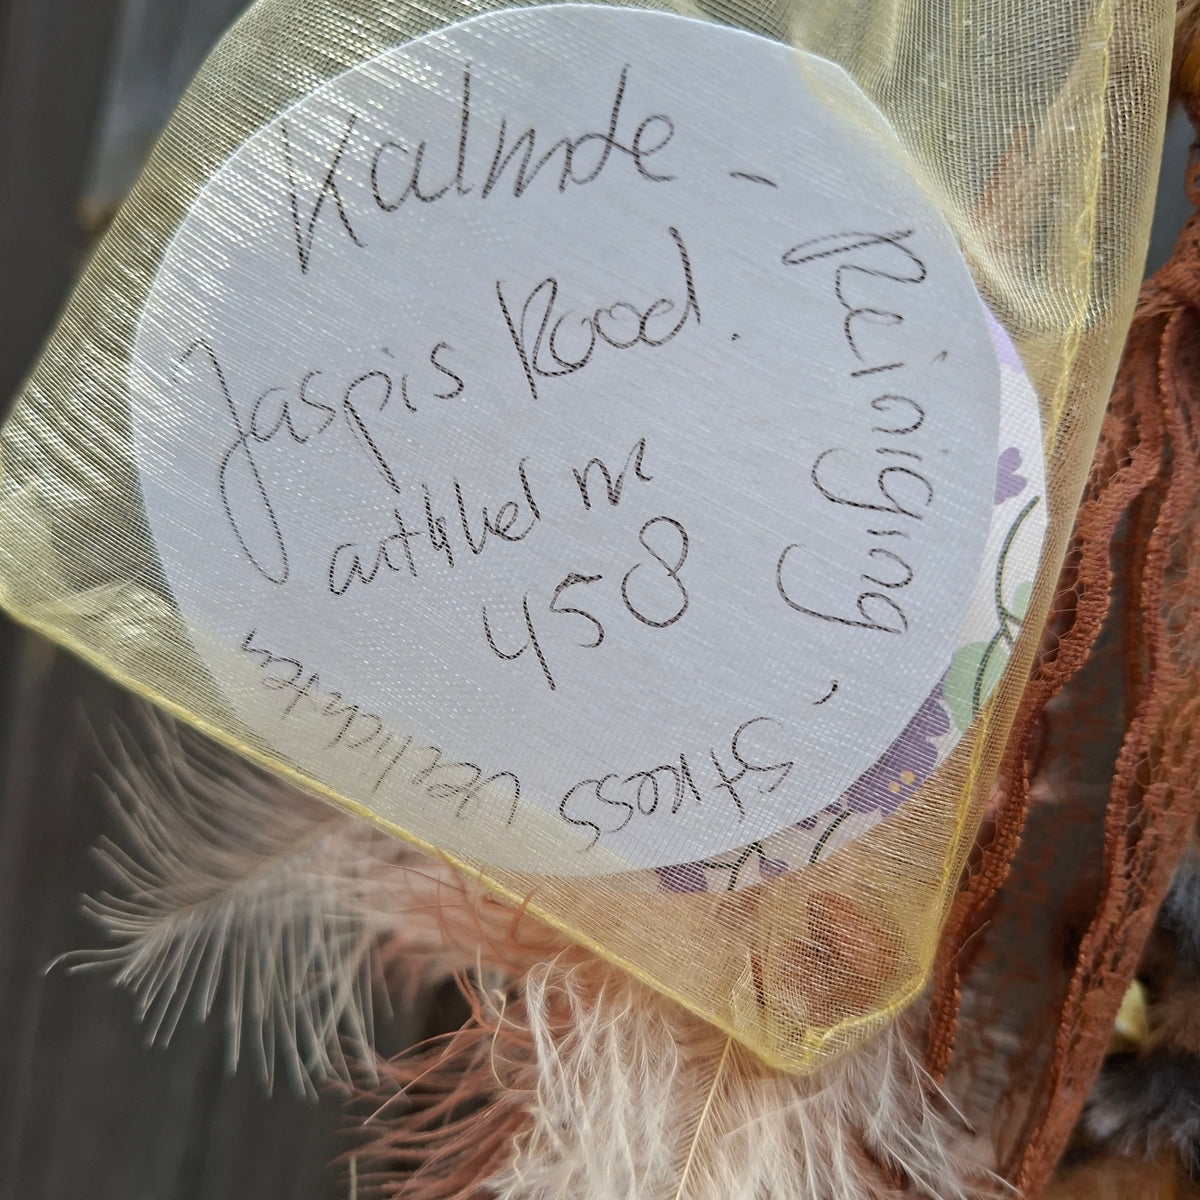 Kalmte -
Jaspis Rood.
artikel nr
458
Reiniging -
Stress verlichten